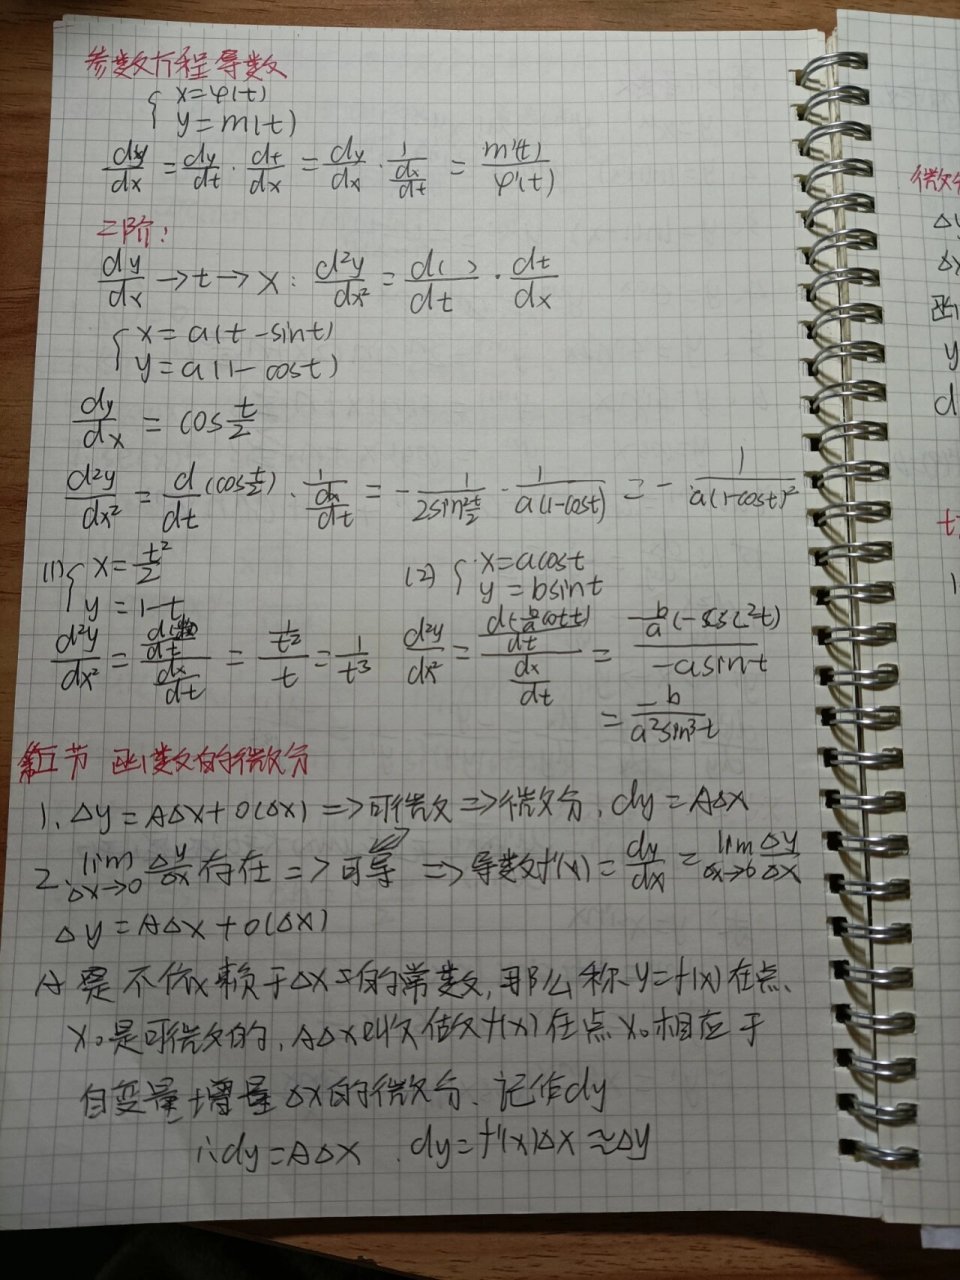 参数方程导数
{ x=φ(t)
y=m(t)
dy/dx = dy/dt · dt/dx = dy/dx · 1/(dx/dt) = m'(t)/φ'(t)
二阶:
dy/dx → t → x : d²y/dx² = d( )/dt · dt/dx
{ x=a(t-sint)
y=a(1-cost)
dy/dx = cos t/2
d²y/dx² = d/dt (cos t/2) · 1/(dx/dt) = - 1/(2sin² t/2) · 1/(a(1-cost)) = - 1/(a(1-cost)²
(1) { x= t²/2
y=1-t
(2) { x=acost
y=bsint
d²y/dx² = (1/t²)/t = 1/t³
d²y/dx² = (d(-b/a cott)/dt)/(dx/dt) = (-b/a(-csc²t))/(-asint)
= -b/(a²sin³t)
第五节 函数的微分
1. Δy=AΔx+o(Δx) => 可微 => 微分. dy=AΔx
2. lim Δx→0 Δy/Δx 存在 => 可导 => 导数f'(x)= dy/dx = lim Δx→0 Δy/Δx
Δy=AΔx+o(Δx)
A是不依赖于Δx的常数,那么称y=f(x)在点
x₀是可微的, AΔx叫做f(x)在点x₀相应于
自变量增量Δx的微分. 记作dy
∴dy=AΔx . dy=f'(x)Δx≈Δy
微分
Δy
Δx
函
y
d